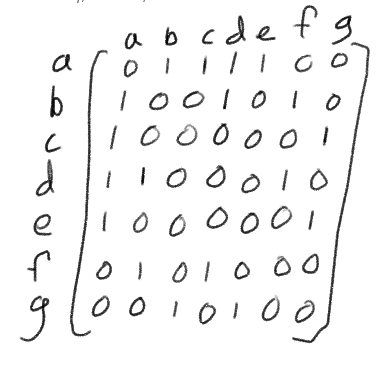 a b c d e f g
a 0 1 1 1 1 0 0
b 1 0 0 1 0 1 0
c 1 0 0 0 0 0 1
d 1 1 0 0 0 1 0
e 1 0 0 0 0 0 1
f 0 1 0 1 0 0 0
g 0 0 1 0 1 0 0